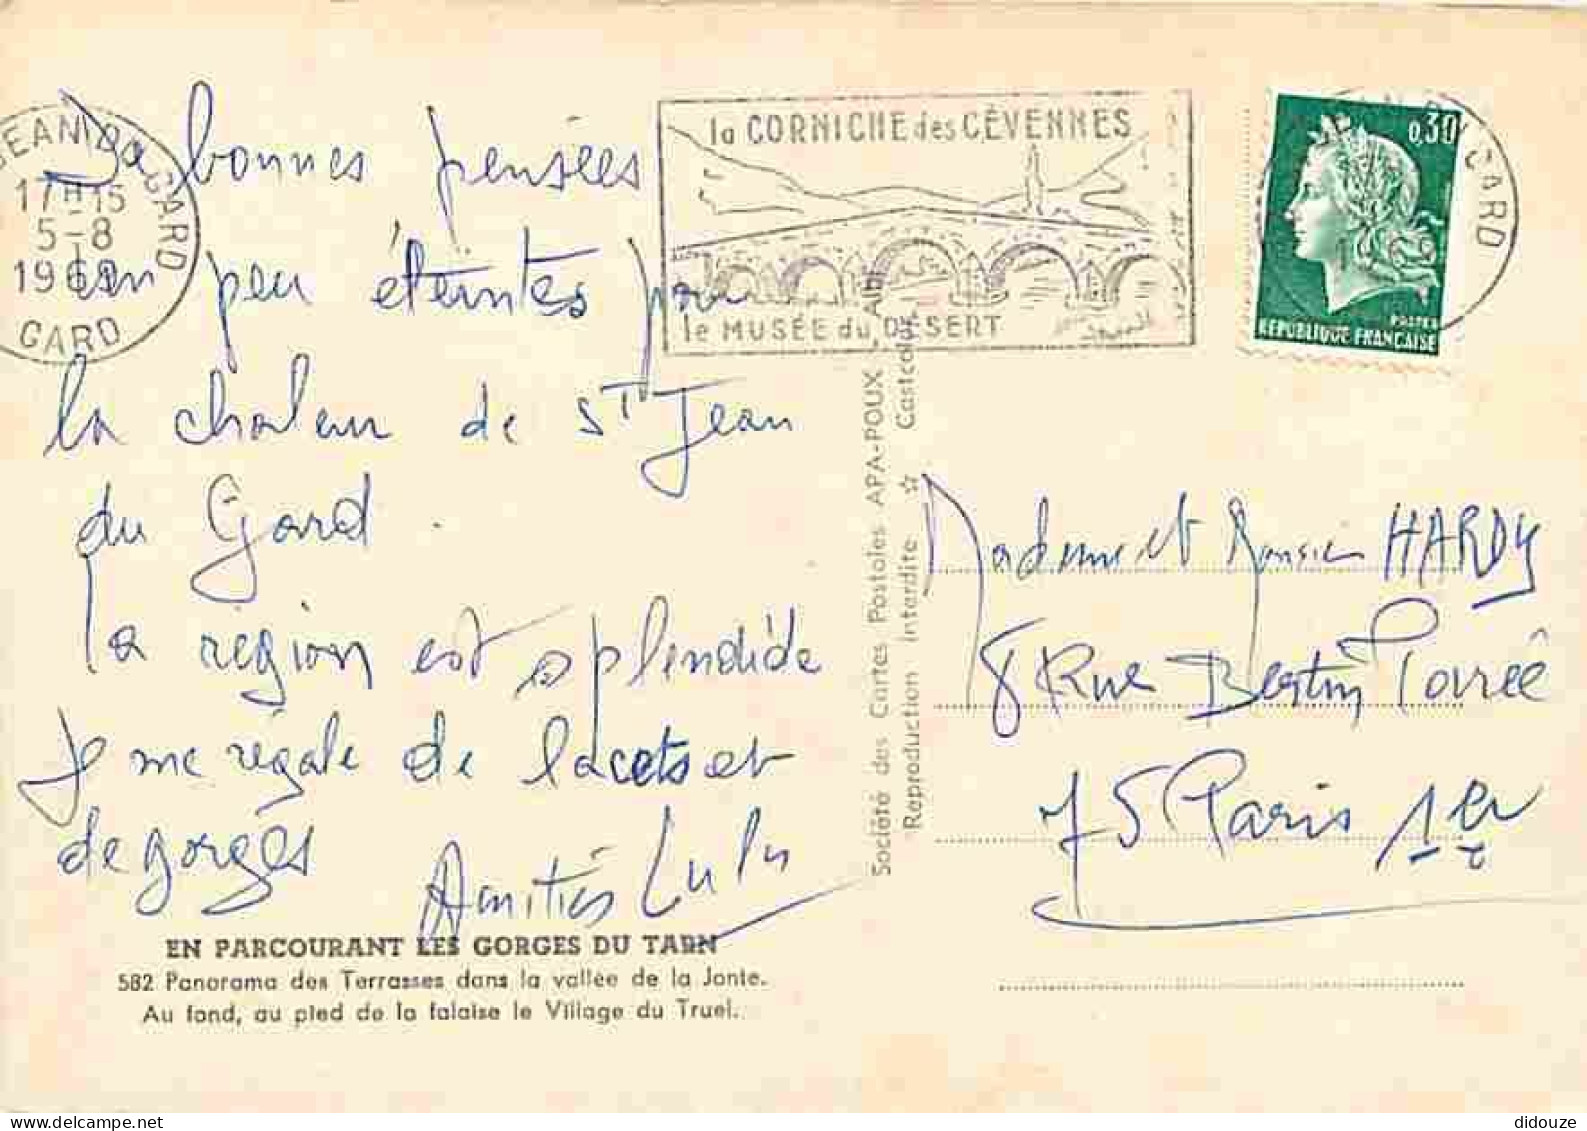 JEAN DU GARD
17H15
5-8
1969
GARD
la CORNICHE des CÉVENNES
le MUSÉE du DÉSERT
0,30
POSTES
REPUBLIQUE FRANÇAISE
De bonnes pensées
un peu éteintes par
la chaleur de ST Jean
du Gard.
la région est splendide
je me régale de lacets et
de gorges
Amitiés Lulu
EN PARCOURANT LES GORGES DU TARN
582 Panorama des Terrasses dans la vallée de la Jonte.
Au fond, au pied de la falaise le Village du Truel.
Société des Cartes Postales APA-POUX, Albi
Reproduction interdite ☆ Castcolor
Madame et Monsieur HARDY
8 Rue Bertin Poirée
75 Paris 1er
didouze